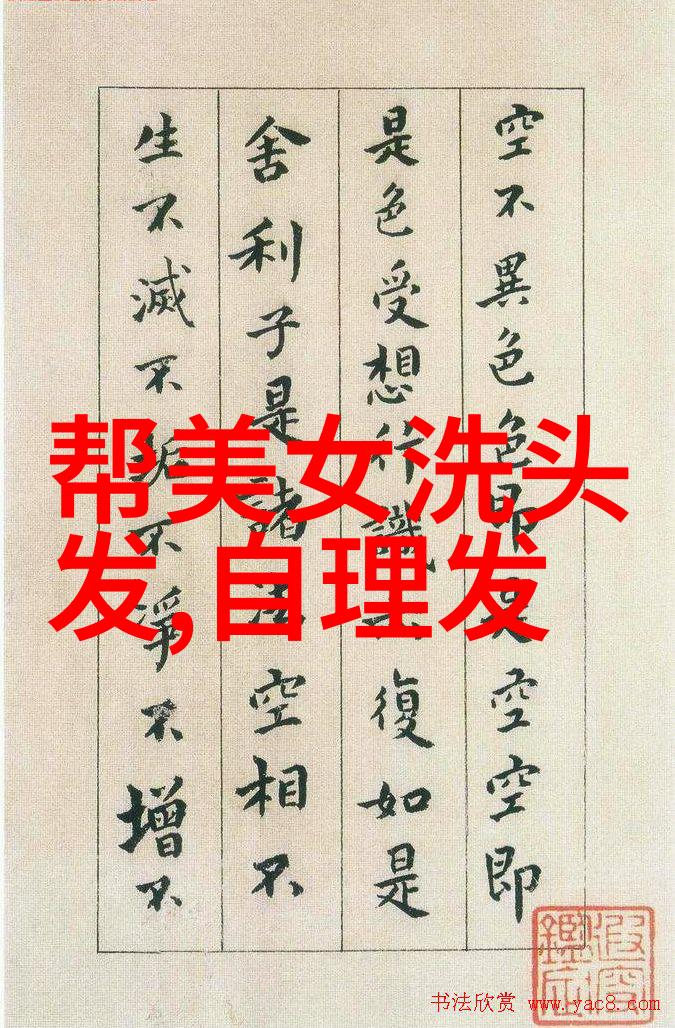 空不異色色即是空空即
是色受想行識復如是
舍利子是諸法空相不
生不滅不垢不淨不增不
帮美女洗头
发,自理发
书法欣赏 www.yac8.com